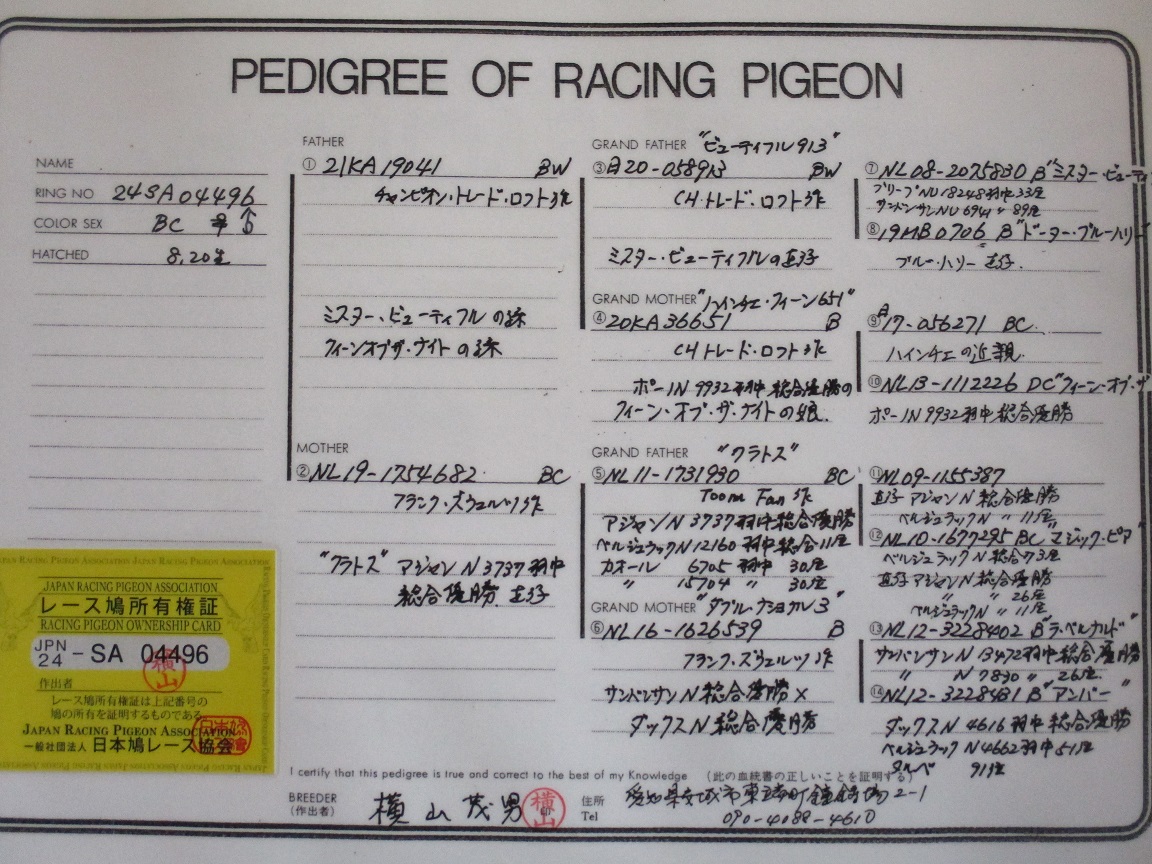 PEDIGREE OF RACING PIGEON
NAME
RING NO 24SA04496
COLOR SEX BC
HATCHED 8.20生
FATHER
① 21KA19041 BW
チャンピオン・トレード・ロフト作
ミスター・ビューティフルの孫
クィーンオブザ・ナイトの孫
MOTHER
② NL19-1754682 BC
フランク・ズウェルツ作
"クラトス" アジャンN3737羽中
総合優勝 直仔
GRAND FATHER "ビューティフル913"
③ 日20-058913 BW
CH・トレード・ロフト作
ミスター・ビューティフルの直仔
GRAND MOTHER "ハインチェ・クィーン651"
④ 20KA36651 B
CHトレード・ロフト作
ポーIN 9932羽中総合優勝の
クィーン・オブ・ザ・ナイトの娘.
GRAND FATHER "クラトス"
⑤ NL11-1731930 BC
Toom Fan作
アジャンN 3737羽中総合優勝
ベルジュラックN12160羽中総合11座
カオール 6705羽中 30座
〃 15704 〃 30座
GRAND MOTHER "ダブルナショナル3"
⑥ NL16-1626539 B
フランク・ズウェルツ作
サンバンサンN総合優勝×
ダックスN総合優勝
⑦ NL08-2075830 B"ミスター・ビューティ
ブリーブNU18248羽中33座
サンバンサンNU6941〃89座
⑧ 19MB0706 B"ドーター・ブルーハリー
ブルー・ハリー 直仔.
⑨ 日17-056271 BC
ハインチェの近親.
⑩ NL13-1112226 DC"クィーン・オブ・ザ
ポーIN9932羽中総合優勝
⑪ NL09-1155387
直仔アジャンN総合優勝
ベルジュラックN 〃 11座
⑫ NL10-1677295 BC"マジック・ピア
ベルジュラックN総合73座
直仔アジャンN総合優勝
〃 〃 26座
ベルジュラックN 〃 11座
⑬ NL12-3228402 B"ラ・ベルナルド"
サンバンサンN 13472羽中総合優勝
〃 N 7830 〃 26座
⑭ NL12-3228481 B"アンバー"
ダックスN 4616羽中総合優勝
ベルジュラックN4662羽中51座
タルベ 91座
JAPAN RACING PIGEON ASSOCIATION
レース鳩所有権証
RACING PIGEON OWNERSHIP CARD
JPN 24 - SA 04496
横山
作出者
レース鳩所有権証は上記番号の
鳩の所有を証明するものである
JAPAN RACING PIGEON ASSOCIATION
一般社団法人 日本鳩レース協会
I certify that this pedigree is true and correct to the best of my Knowledge (此の血統書の正しいことを証明する)
BREEDER (作出者) 横山茂男 横山 印
住所 愛知県安城市東端町鎌錆場2-1
Tel 090-4088-4610